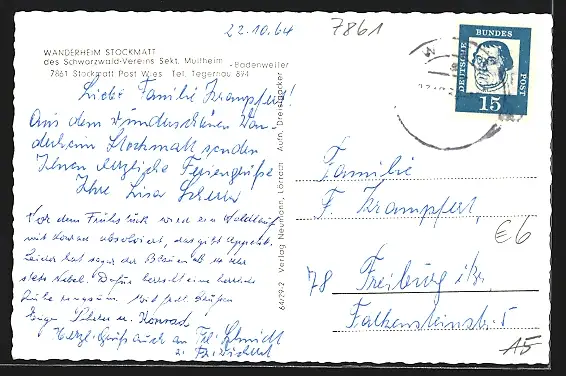 22.10.64
7861
WANDERHEIM STOCKMATT
des Schwarzwald-Vereins Sekt. Müllheim - Badenweiler
7861 Stockmatt Post Wies Tel. Tegernau 894
DEUTSCHE BUNDES POST
15
Liebe Familie Krampfert!
Aus dem wunderschönen Wan-
derheim Stockmatt senden
Ihnen herzliche Feriengrüße
Ihre Lisa
Vor dem Frühstück wird ein Waldlauf
mit absolviert, das gibt Appetit.
Leider hat sogar der Blauen ab u. zu
stets Nebel. Dafür herrscht eine herrliche
Ruhe ringsum. Mit Grüßen
u. Konrad
Herzl. Grüße auch an Frl. Schmidt
u.
64/29.2 Verlag Neumann, Lörrach Aufn. Dreispringer
Familie
F. Krampfert,
78 Freiburg i/Br.
Falkensteinstr. 5
€6
A5